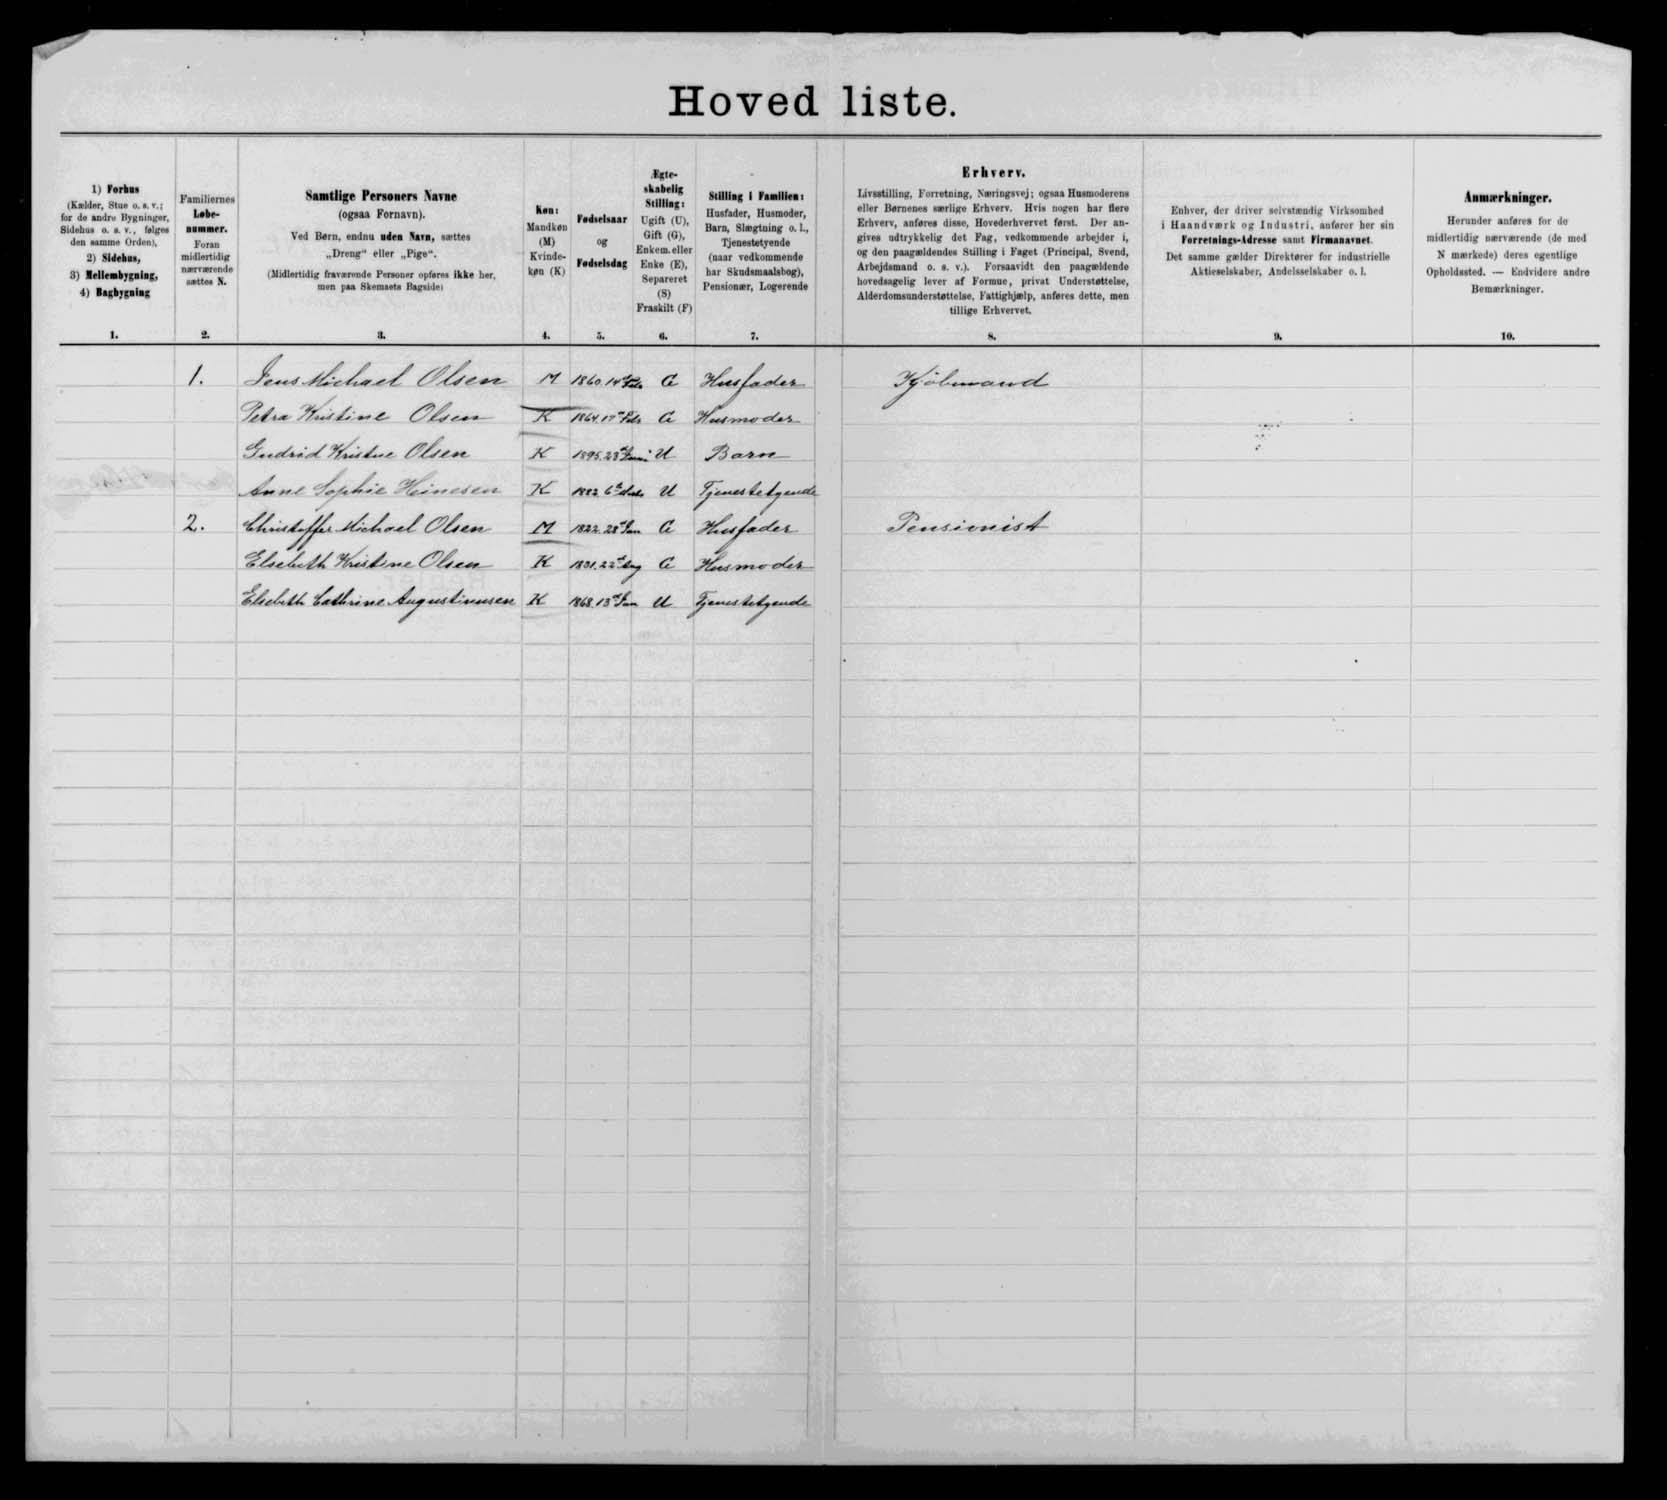 Hoved liste.
1) Forhus
(Kælder, Stue o. s. v.;
for de andre Bygninger,
Sidehus o. s. v., følges
den samme Orden),
2) Sidehus,
3) Mellembygning,
4) Bagbygning
1.
Familiernes
Løbe-
nummer.
Foran
midlertidig
nærværende
sættes N.
2.
Samtlige Personers Navne
(ogsaa Fornavn).
Ved Børn, endnu uden Navn, sættes
„Dreng“ eller „Pige“.
(Midlertidig fraværende Personer opføres ikke her,
men paa Skemaets Bagside)
3.
Køn:
Mandkøn
(M)
Kvinde-
køn (K)
4.
Fødselsaar
og
Fødselsdag
5.
Ægte-
skabelig
Stilling:
Ugift (U),
Gift (G),
Enkem. eller
Enke (E),
Separeret
(S)
Fraskilt (F)
6.
Stilling i Familien:
Husfader, Husmoder,
Barn, Slægtning o. l.,
Tjenestetyende
(naar vedkommende
har Skudsmaalsbog),
Pensionær, Logerende
7.
Erhverv.
Livsstilling, Forretning, Næringsvej; ogsaa Husmoderens
eller Børnenes særlige Erhverv. Hvis nogen har flere
Erhverv, anføres disse, Hovederhvervet først. Der an-
gives udtrykkelig det Fag, vedkommende arbejder i,
og den paagældendes Stilling i Faget (Principal, Svend,
Arbejdsmand o. s. v.). Forsaavidt den paagældende
hovedsagelig lever af Formue, privat Understøttelse,
Alderdomsunderstøttelse, Fattighjælp, anføres dette, men
tillige Erhvervet.
8.
Enhver, der driver selvstændig Virksomhed
i Haandværk og Industri, anfører her sin
Forretnings-Adresse samt Firmanavnet.
Det samme gælder Direktører for industrielle
Aktieselskaber, Andelsselskaber o. l.
9.
Anmærkninger.
Herunder anføres for de
midlertidig nærværende (de med
N mærkede) deres egentlige
Opholdssted. — Endvidere andre
Bemærkninger.
10.
1. Jens Michael Olsen M 1860. 14d Feb G Husfader Kjøbmand
Petra Kristine Olsen K 1864. 17d Feb G Husmoder
Gudrid Kristine Olsen K 1895. 23d Juni U Barn
Anne Sophie Heinesen K 1882. 6d U Tjenestetyende
2. Christoffer Michael Olsen M 1822. 28d Jan G Husfader Pensionist
Elsebeth Kristine Olsen K 1831. 22d Aug G Husmoder
Elsebeth Cathrine Augustinusen K 1868. 13d Jan U Tjenestetyende